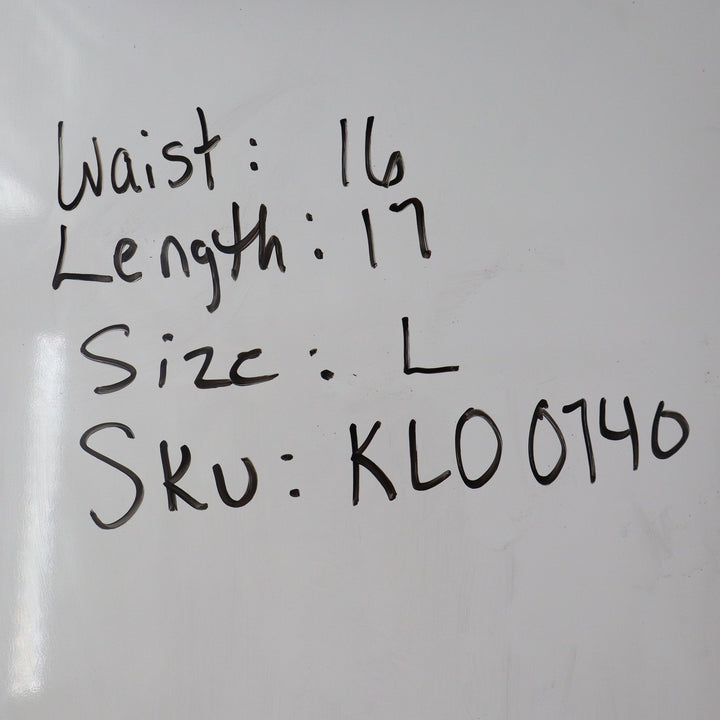 Waist: 16
Length: 17
Size: L
Sku: KLO0740